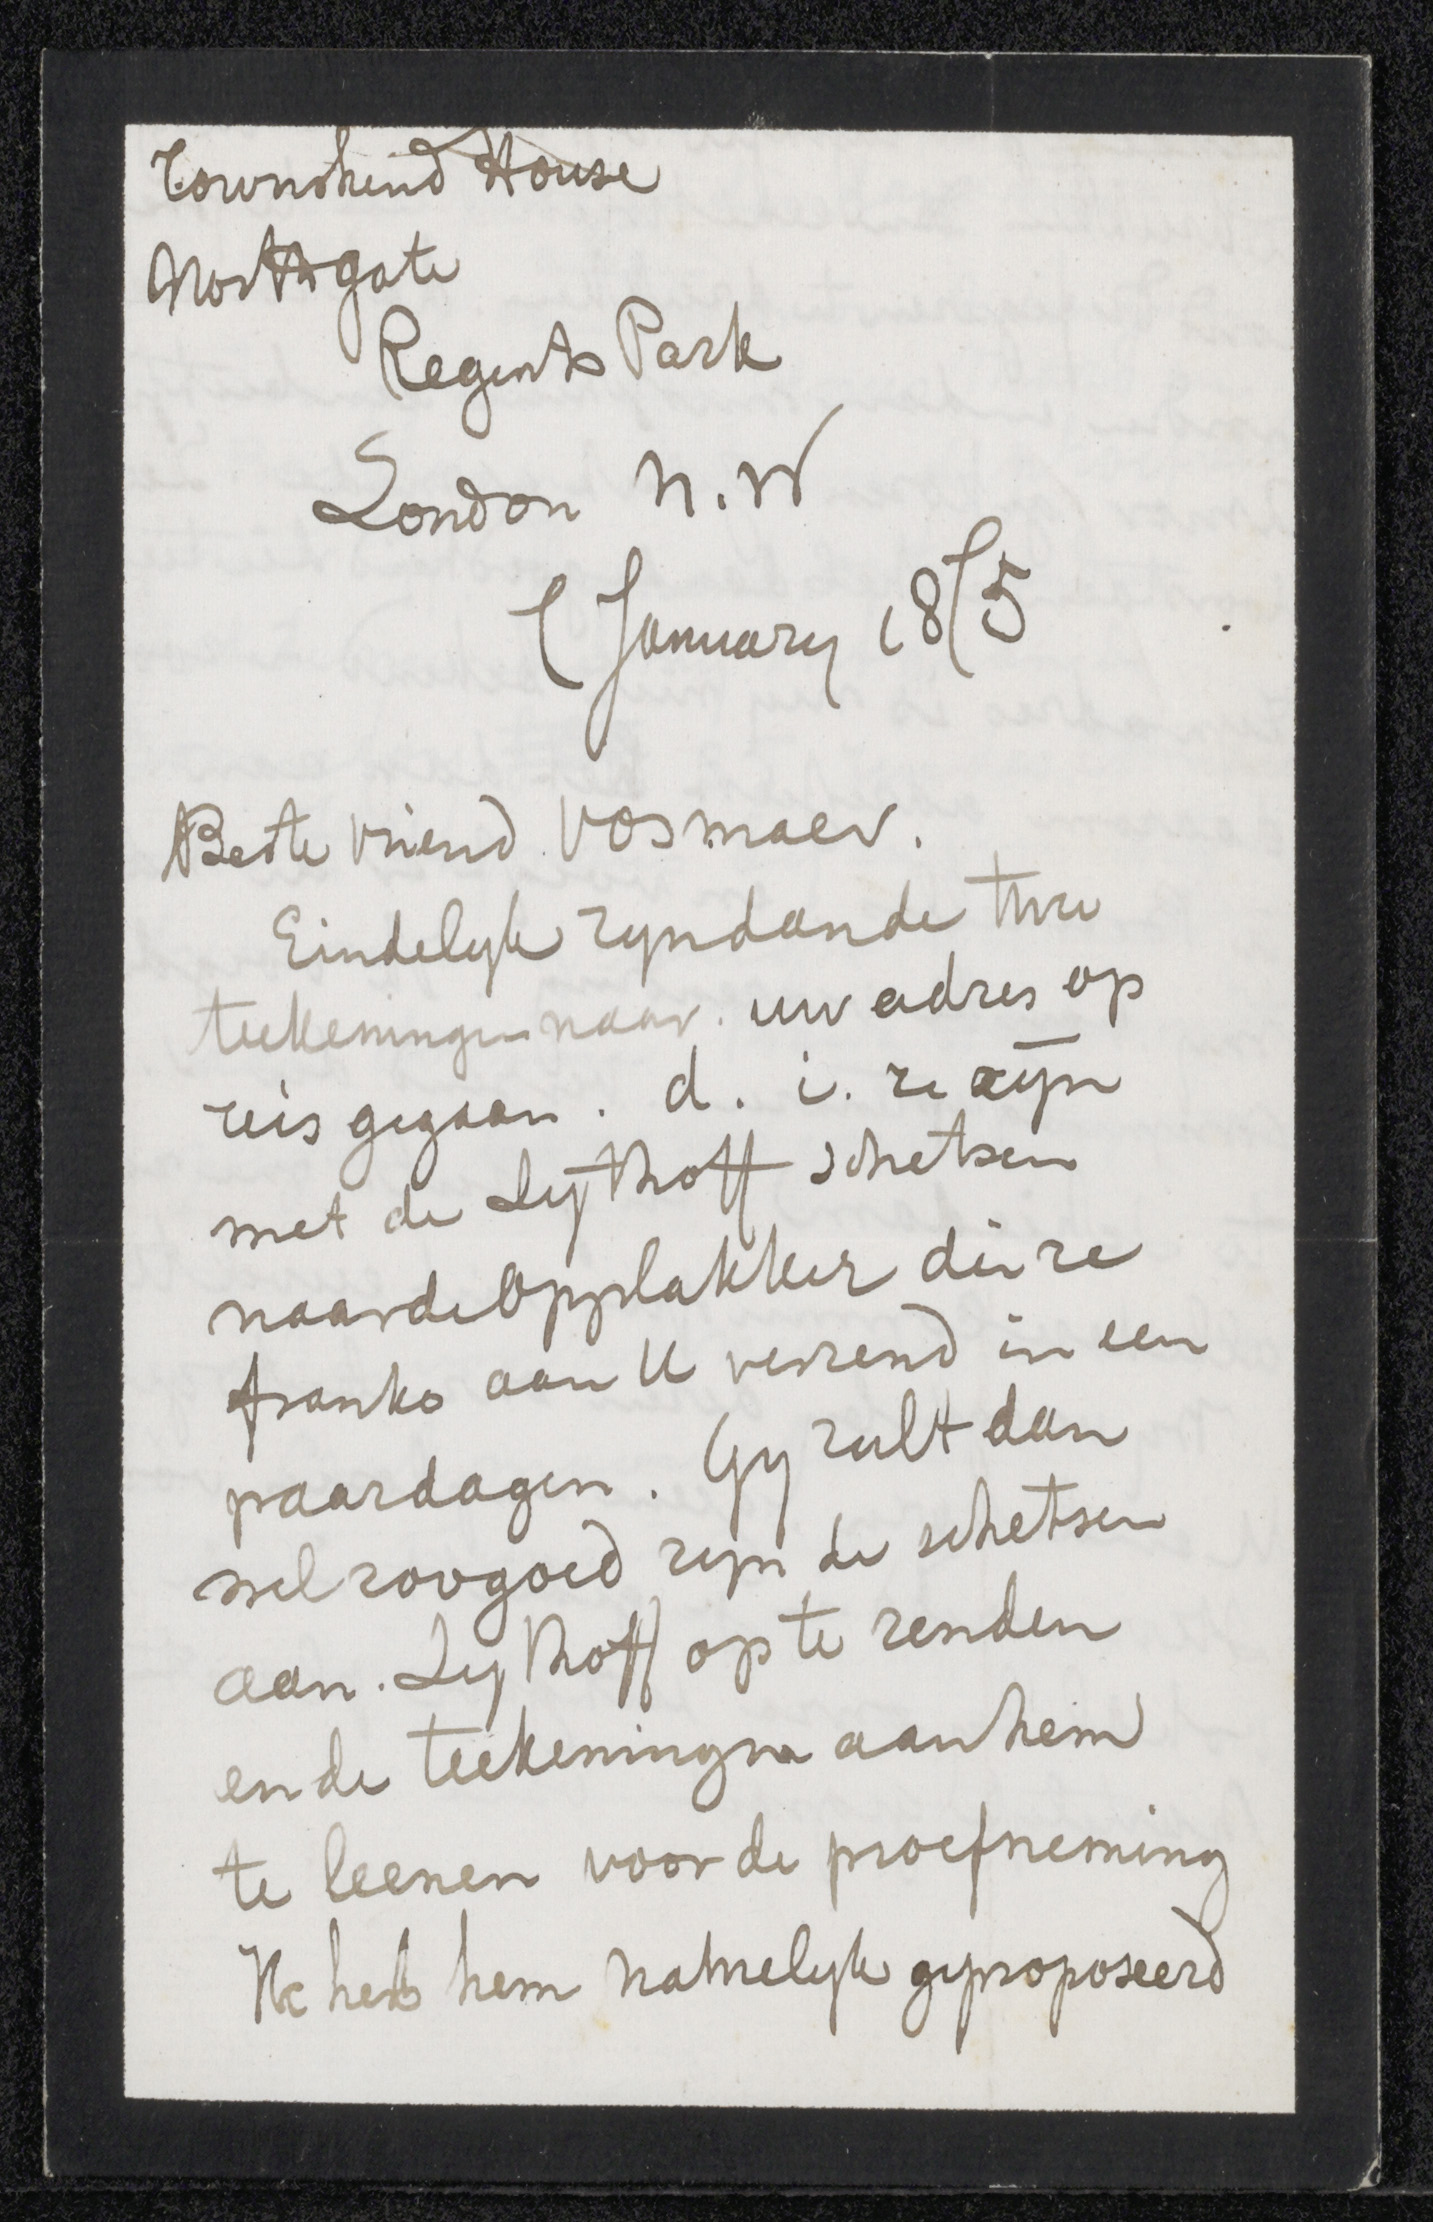 Townshend House
Northgate
Regents Park
London N.W
January 1875
Beste vriend Vosmaer.
Eindelyk zyn dan de twee
teekeningen naar uw adres op
reis gegaan. d. i. ze zijn
met de Sythoff schetsen
naar de Opplakker die ze
franko aan U verzend in een
paar dagen. Gy zult dan
wel zoo goed zyn de schetsen
aan Sythoff op te zenden
en de teekeningen aan hem
te leenen voor de proefneming
Ik heb hem namelyk geproposeerd